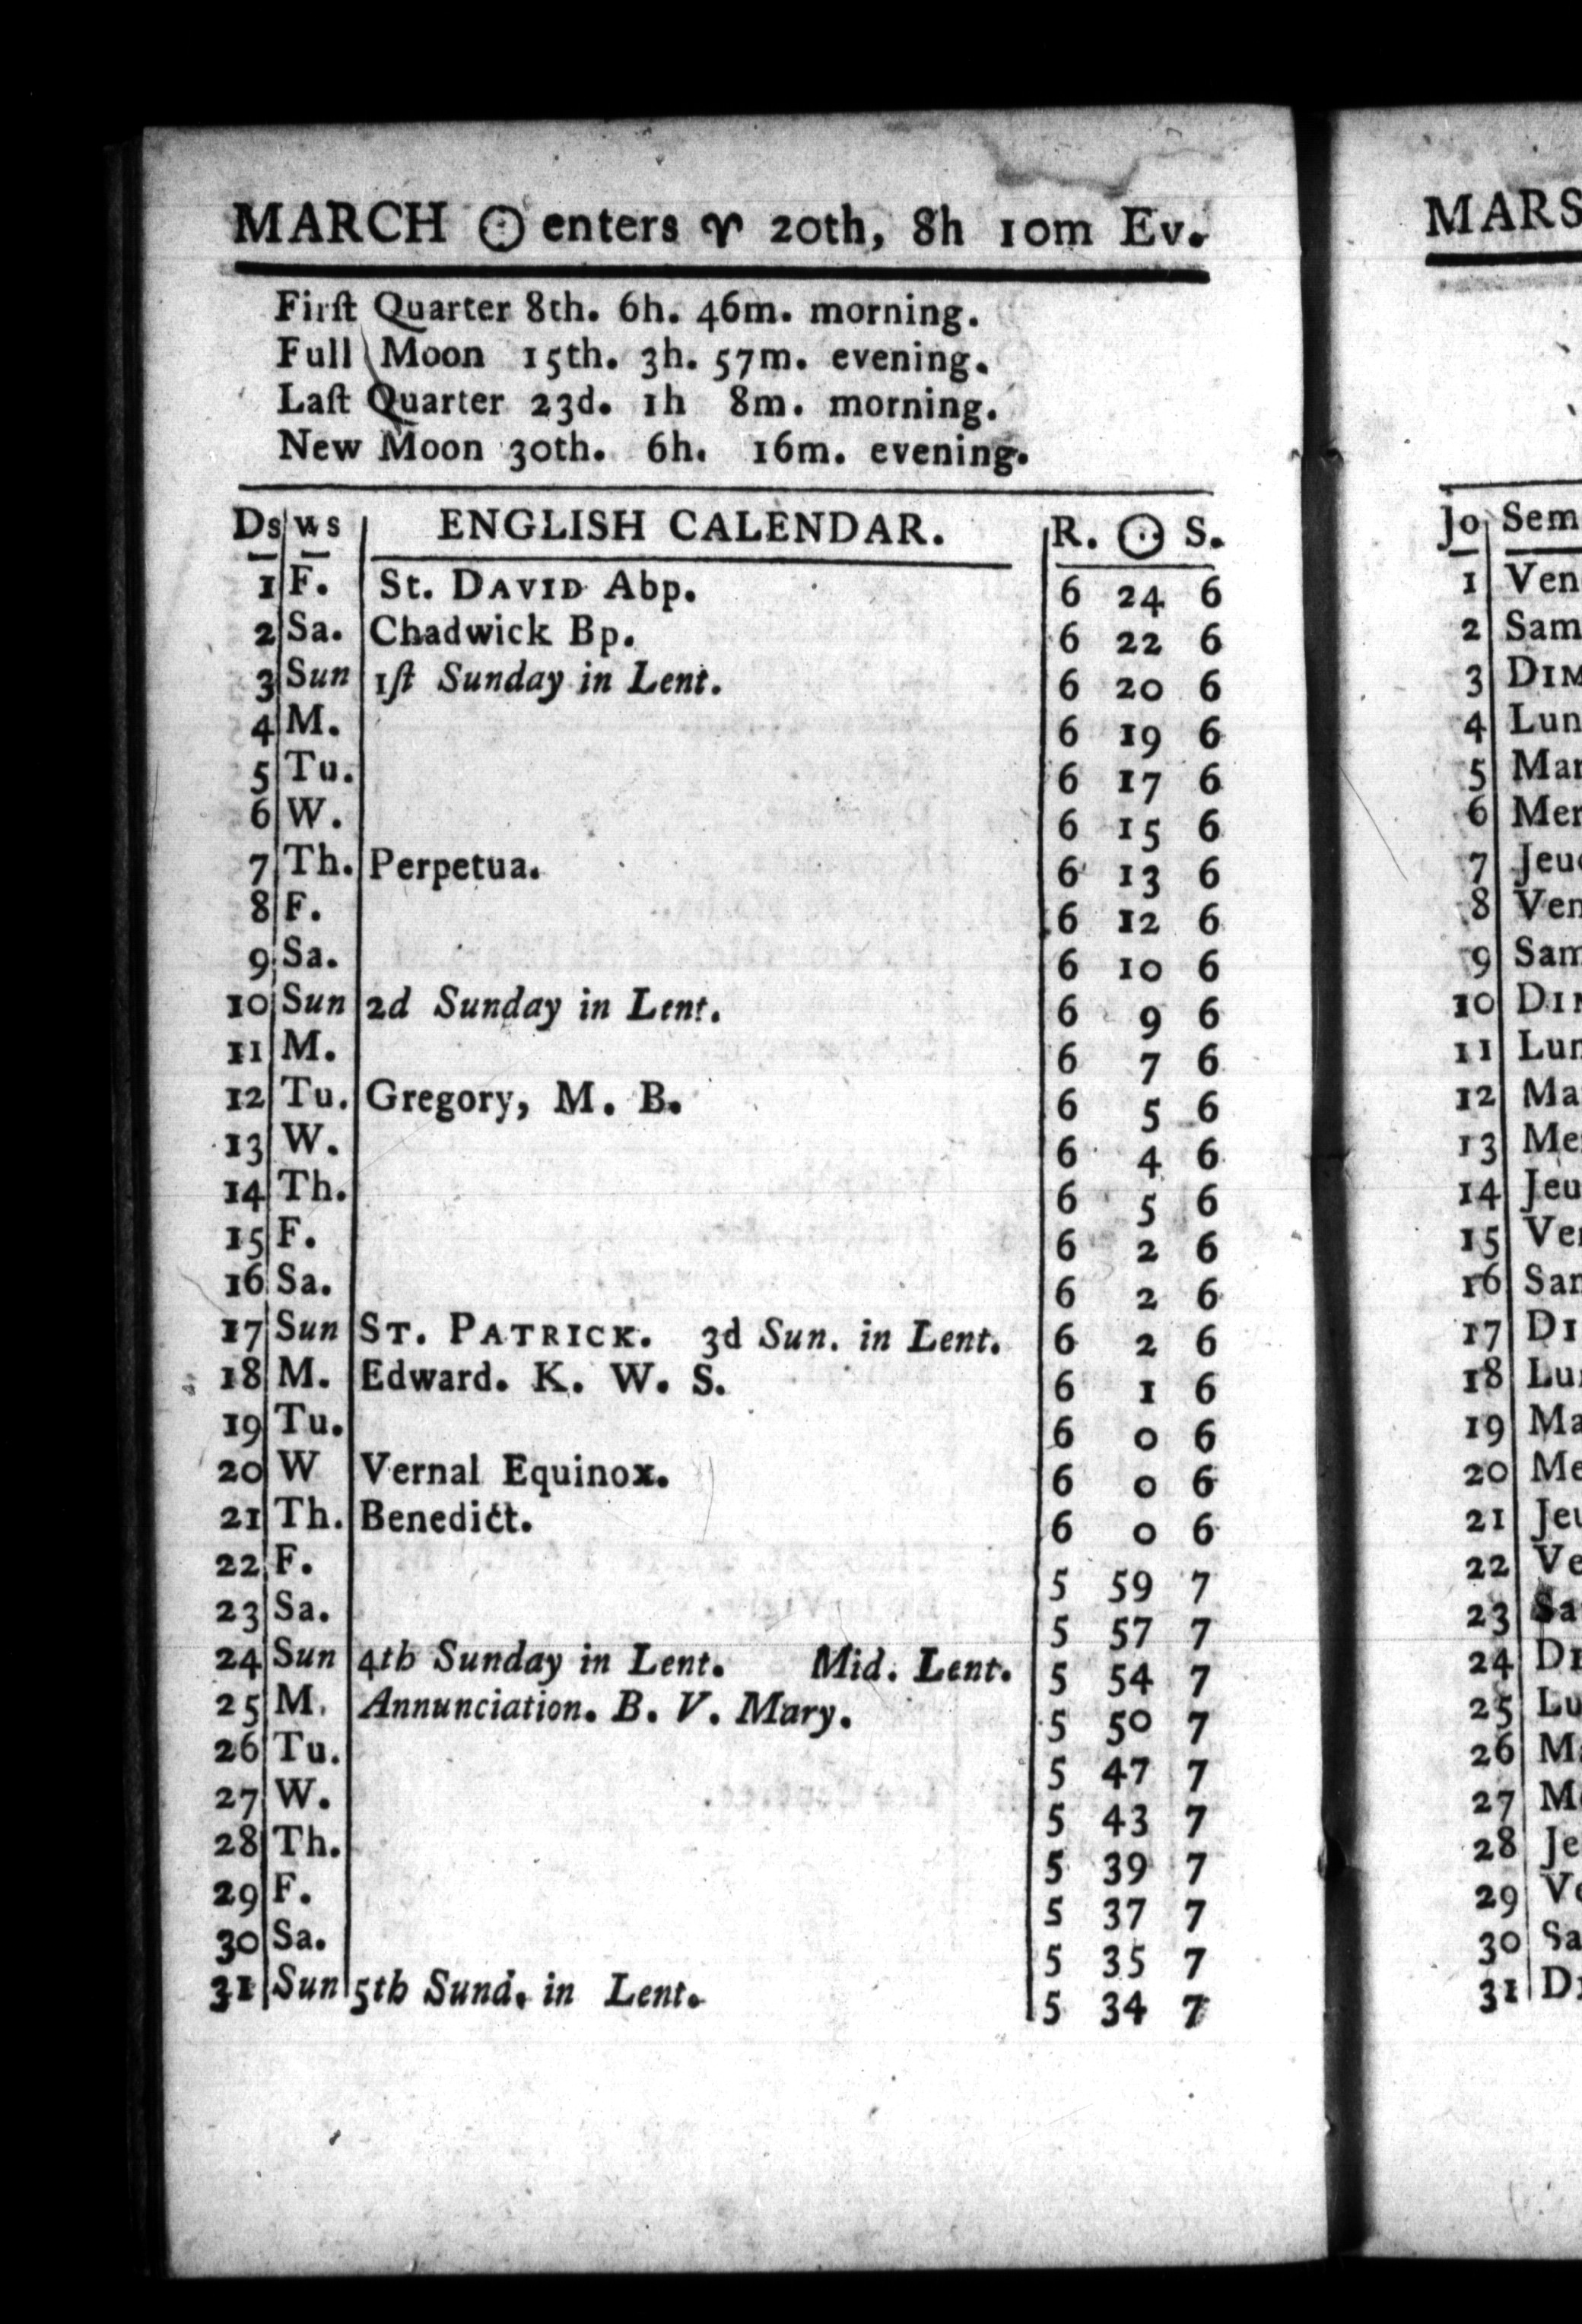 MARCH ☉ enters ♈ 20th, 8h 10m Ev.
Firſt Quarter 8th. 6h. 46m. morning.
Full Moon 15th. 3h. 57m. evening.
Laſt Quarter 23d. 1h 8m. morning.
New Moon 30th. 6h. 16m. evening.
Ds ws ENGLISH CALENDAR. R. ☉ S.
1 F. St. DAVID Abp. 6 24 6
2 Sa. Chadwick Bp. 6 22 6
3 Sun 1ſt Sunday in Lent. 6 20 6
4 M. 6 19 6
5 Tu. 6 17 6
6 W. 6 15 6
7 Th. Perpetua. 6 13 6
8 F. 6 12 6
9 Sa. 6 10 6
10 Sun 2d Sunday in Lent. 6 9 6
11 M. 6 7 6
12 Tu. Gregory, M. B. 6 5 6
13 W. 6 4 6
14 Th. 6 5 6
15 F. 6 2 6
16 Sa. 6 2 6
17 Sun ST. PATRICK. 3d Sun. in Lent. 6 2 6
18 M. Edward. K. W. S. 6 1 6
19 Tu. 6 0 6
20 W Vernal Equinox. 6 0 6
21 Th. Benedict. 6 0 6
22 F. 5 59 7
23 Sa. 5 57 7
24 Sun 4th Sunday in Lent. Mid. Lent. 5 54 7
25 M. Annunciation. B. V. Mary. 5 50 7
26 Tu. 5 47 7
27 W. 5 43 7
28 Th. 5 39 7
29 F. 5 37 7
30 Sa. 5 35 7
31 Sun 5th Sund. in Lent. 5 34 7
MARS
Jo Sem
1 Ven
2 Sam
3 DIM
4 Lun
5 Mar
6 Mer
7 Jeu
8 Ven
9 Sam
10 DI
11 Lun
12 Ma
13 Me
14 Jeu
15 Ve
16 Sa
17 DI
18 Lu
19 Ma
20 Me
21 Je
22 Ve
23 Sa
24 D
25 Lu
26 M
27 M
28 Je
29 V
30 Sa
31 D